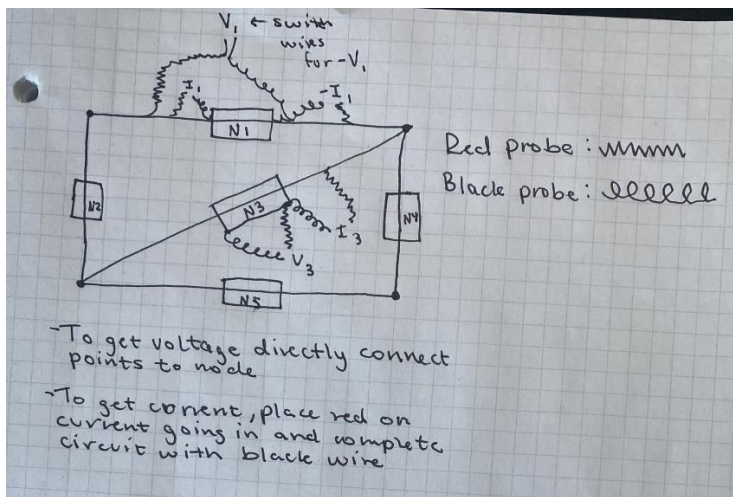 V₁ ← switch
wires
for -V₁
I₁
-I₁
N1
Red probe :
Black probe :
N2
N3
N4
I₃
V₃
N5
-To get voltage directly connect
points to node
-To get corrent, place red on
current going in and complete
circuit with black wire